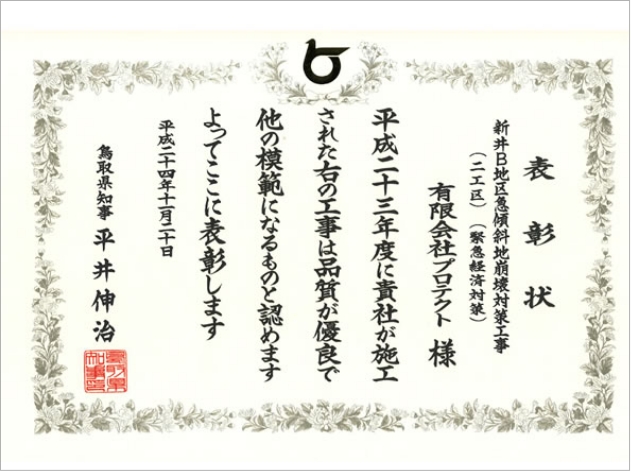 表彰状
新井B地区急傾斜地崩壊対策工事
（二工区）（緊急経済対策）
有限会社プロテクト 様
平成二十三年度に貴社が施工
された右の工事は品質が優良で
他の模範になるものと認めます
よってここに表彰します
平成二十四年十一月二十日
鳥取県知事 平井伸治